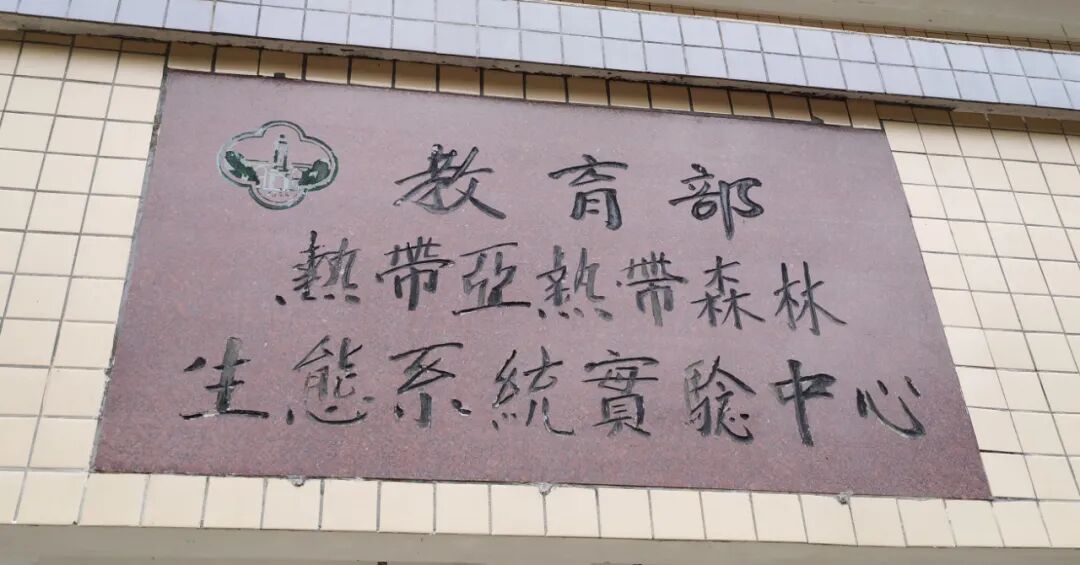 教育部
熱帶亞熱帶森林
生態系統實驗中心